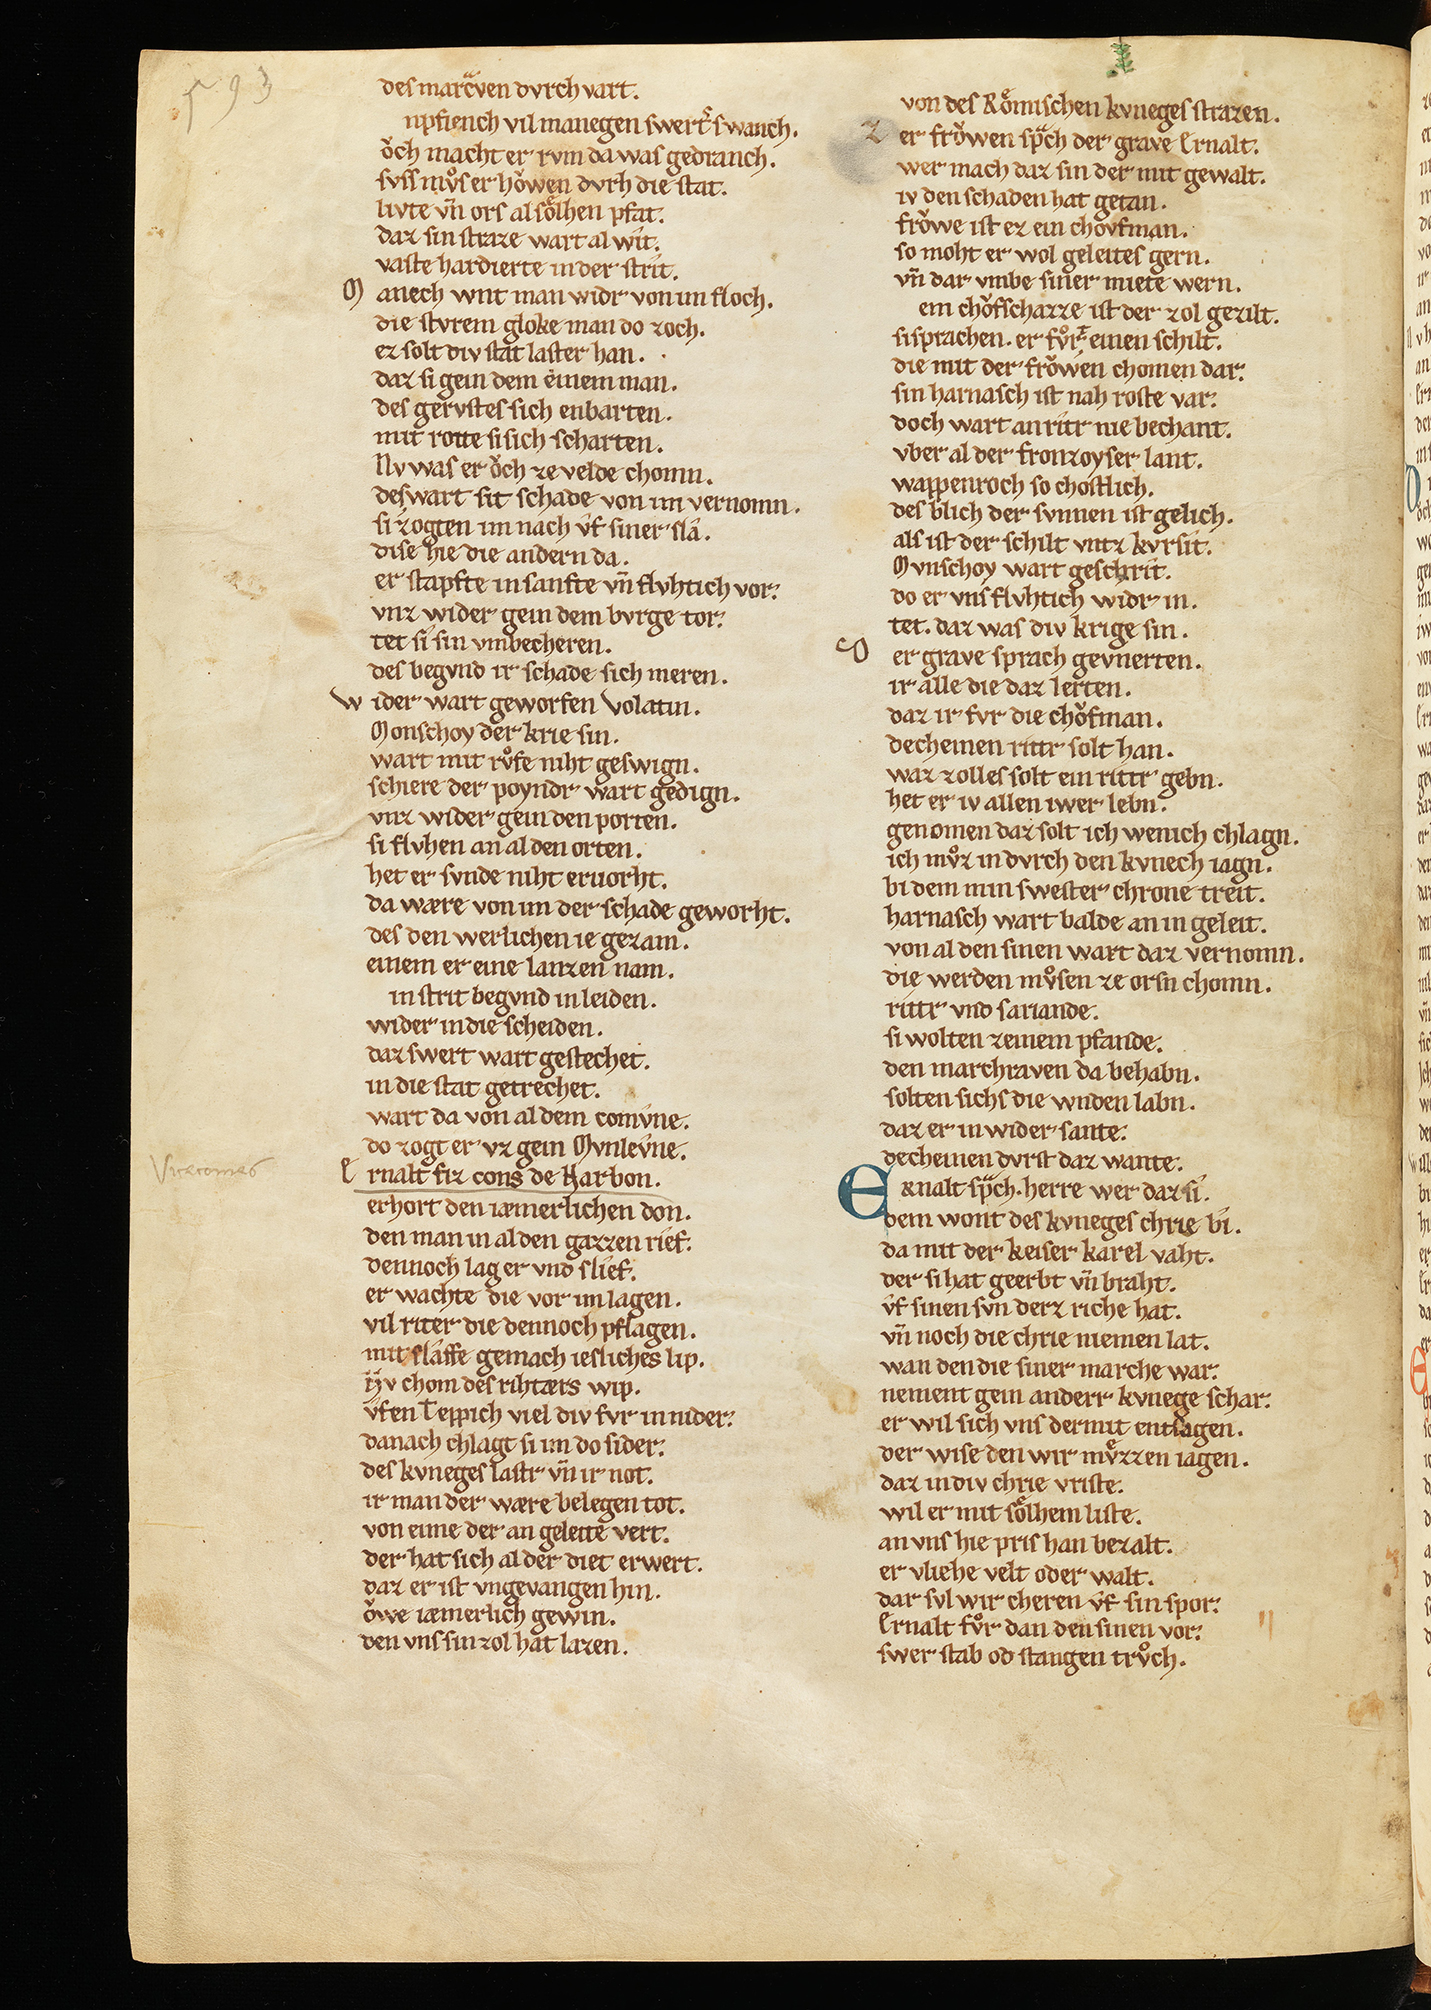 593
des marcͣven dvrch vart.
npfiench vil manegen swertˢ swanch.
oͮch macht er rvm da was gedranch.
svss mvͦs er hoͮwen dvrh die stat.
livte vn̄ ors al soͤlhen pfat.
daz sin straze wart al wit.
vaste hardierte in der strit.
M anech wnt man widr von im floch.
die stvrem gloke man do zoch.
ez solt div stat laster han.
daz si gein dem einem man.
des gervstes sich enbarten.
mit rotte si sich scharten.
Nv was er oͮch ze velde chomn.
des wart sit schade von im vernomn.
si zogten im nach vf siner sla.
dise hie die andern da.
er stapfte in sanfte vn̄ flvhtich vor.
vnz wider gein dem bvrge tor.
tet si sin vmbecheren.
des begvnd ir schade sich meren.
W ider wart geworfen Volatin.
Monschoy der krie sin.
wart mit rvͦfe niht geswign.
schiere der poyndr wart gedign.
vnz wider gein den porten.
si flvhen an al den orten.
het er svnde niht ervorht.
da wære von im der schade geworht.
des den werlichen ie gezam.
einem er eine lanzen nam.
in strit begvnd in leiden.
wider in die scheiden.
daz swert wart gestechet.
in die stat getrechet.
wart da von al dem comvne.
do zogt er vz gein Mvnlevne.
Vicecomes
E rnalt fiz cons de Narbon.
erhort den iæmerlichen don.
den man in al den gazzen rief.
dennoch lag er vnd slief.
er wachte die vor im lagen.
vil riter die dennoch pflagen.
mit slaffe gemach iesliches lip.
Nv chom des rihtærs wip.
vf en Teppich viel div fvr in nider.
danach chlagt si im do sider.
des kvneges lastr vn̄ ir not.
ir man der wære belegen tot.
von eime der an geleite vert.
der hat sich al der diet erwert.
daz er ist vngevangen hin.
oͮwe iæmerlich gewin.
den vns sin zol hat lazen.
von des Roͤmischen kvneges strazen.
Z er froͮwen spͣch der grave Ernalt.
wer mach daz sin der mit gewalt.
iv den schaden hat getan.
froͮwe ist ez ein choͮfman.
so moht er wol geleites gern.
vn̄ dar vmbe siner miete wern.
ein choͮfschazze ist der zol gezilt.
si sprachen. er fvͦrt einen schilt.
die mit der froͮwen chomen dar.
sin harnasch ist nah roste var.
doch wart an ritr nie bechant.
vber al der fronzoyser lant.
wappenroch so chostlich.
des blich der svnnen ist gelich.
als ist der schilt vntz kvrsit.
Mvnschoy wart geschrit.
do er vns flvhtich widr in.
tet. daz was div krige sin.
D er grave sprach gevnerten.
ir alle die daz lerten.
daz ir fvr die choͮfman.
decheinen rittr solt han.
waz zolles solt ein rittr gebn.
het er iv allen iwer lebn.
genomen daz solt ich wenich chlagn.
ich mvͦz in dvrch den kvnech iagn.
bi dem min swester chrone treit.
harnasch wart balde an in geleit.
von al den sinen wart daz vernomn.
die werden mvͦsen ze orsn chomn.
rittr vnd sariande.
si wolten zeinem pfande.
den marchraven da behabn.
solten sichs die wnden labn.
daz er in wider sante.
decheinen dvrst daz wante.
E Rnalt spͣch. herre wer daz si.
dem wont des kvneges chrie bi.
da mit der keiser karel vaht.
der si hat geerbt vn̄ braht.
vf sinen svn derz riche hat.
vn̄ noch die chrie niemen lat.
wan den die siner marche war.
nement gein anderr kvnege schar.
er wil sich vns dermit entsagen.
der wise den wir mvͤzzen iagen.
daz in div chrie vriste.
wil er mit soͤlhem liste.
an vns hie pris han bezalt.
er vliehe velt oder walt.
dar svl wir cheren vf sin spor.
Ernalt fvͦr dan den sinen vor.
swer stab od stangen trvͦch.